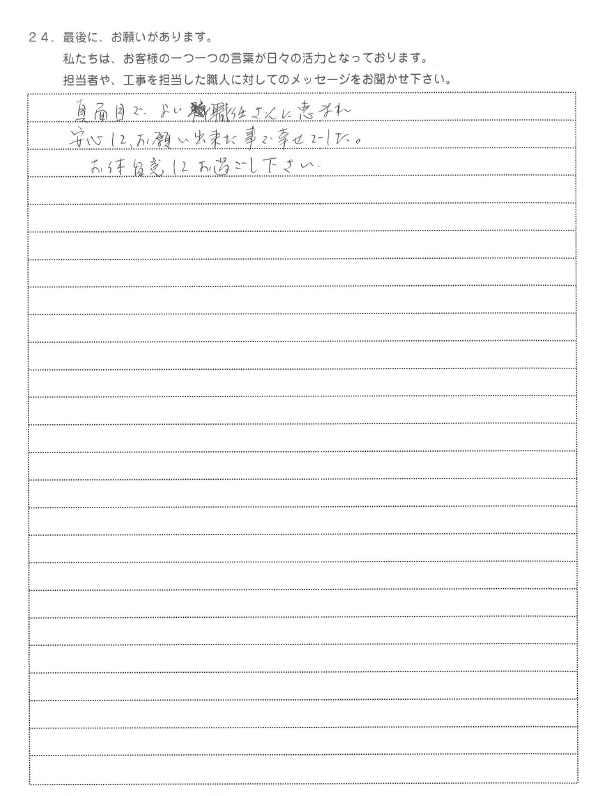 24. 最後に、お願いがあります。
私たちは、お客様の一つ一つの言葉が日々の活力となっております。
担当者や、工事を担当した職人に対してのメッセージをお聞かせ下さい。
真面目で、よい職任さんに恵まれ
安心して、お願い出来た事で幸せでした。
お体留意してお過ごし下さい。